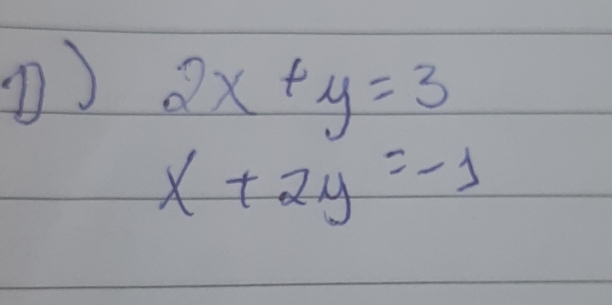 D) 2x + y = 3
x + 2y = -1